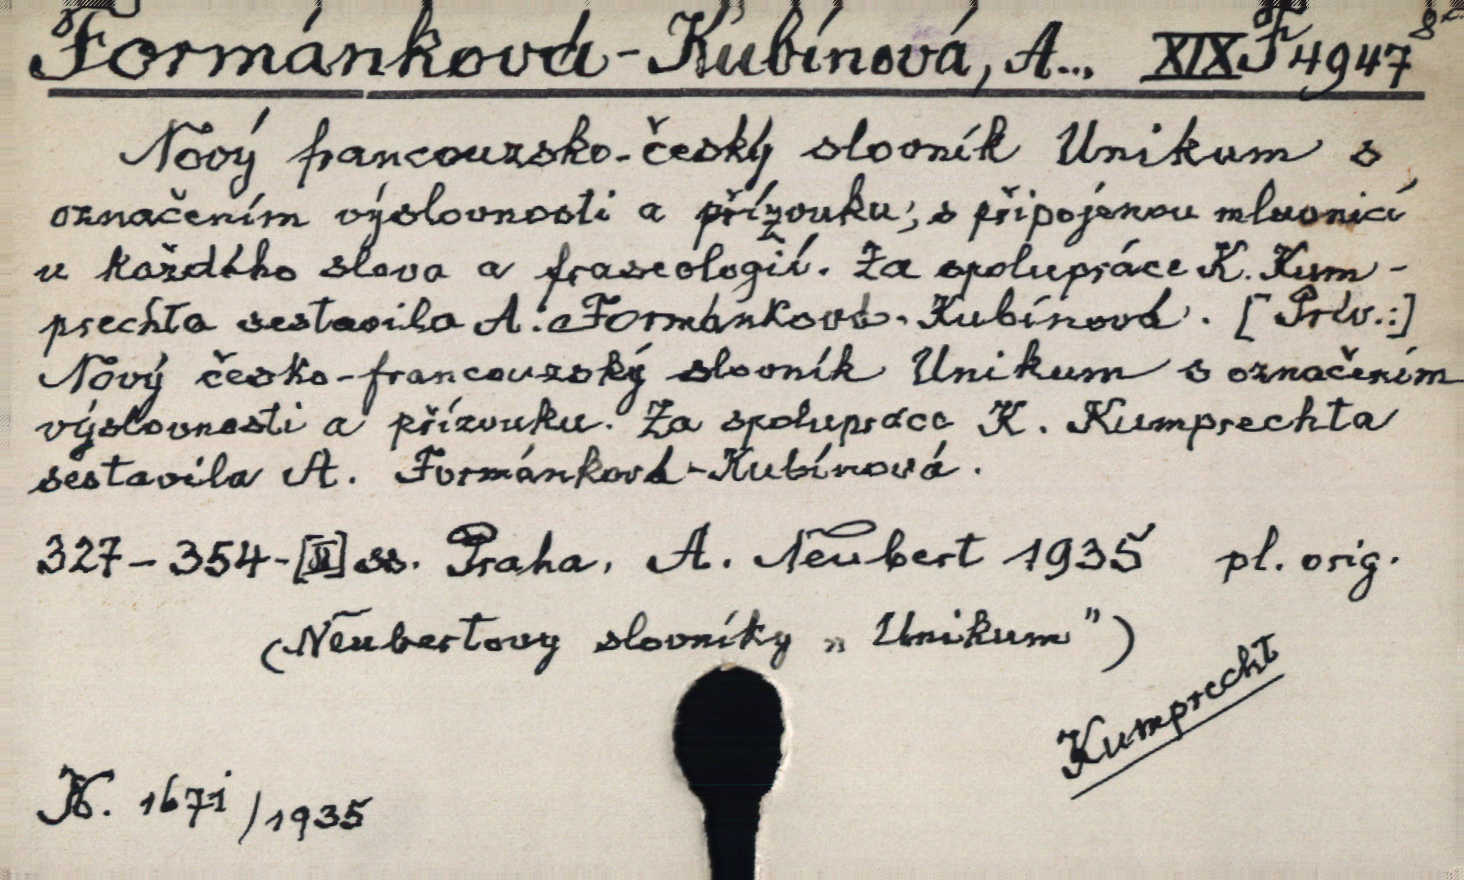 Formánková-Kubínová, A.., XIX F 4947
Nový francouzsko-český slovník Unikum s
označením výslovnosti a přízvuku, s připojenou mluvnicí
u každého slova a fraseologií. Za spolupráce K. Kum-
prechta sestavila A. Formánková-Kubínová. [Přív.:]
Nový česko-francouzský slovník Unikum s označením
výslovnosti a přízvuku. Za spolupráce K. Kumprechta
sestavila A. Formánková-Kubínová.
327-354-[II] ss. Praha, A. Neubert 1935 pl. orig.
(Neubertovy slovníky „Unikum")
Kumprecht
K. 1671/1935